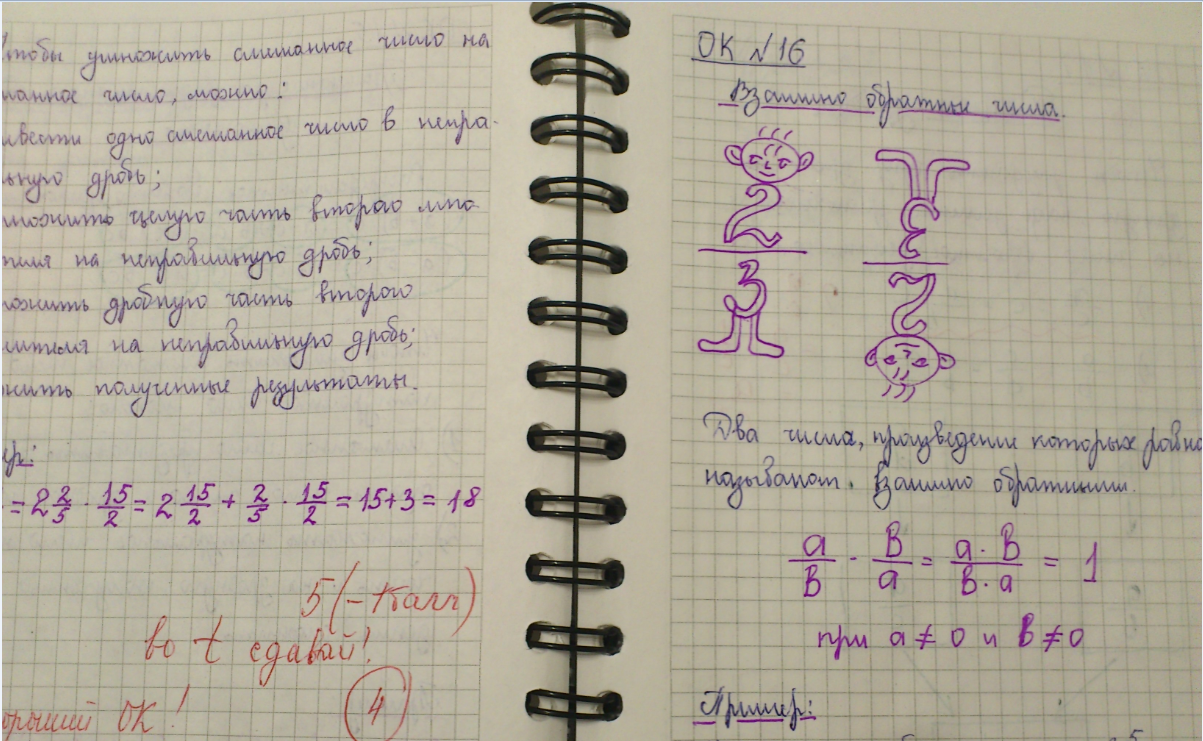 Чтобы умножить смешанное число на
число, можно:
одно смешанное число в непра-
дробь;
целую часть второго мно
на неправильную дробь;
дробную часть второго
на неправильную дробь;
полученные результаты.
= 2 2/5 · 15/2 = 2 15/2 + 2/5 · 15/2 = 15+3 = 18
5 (-1балл)
во t сдавай!
ОК!
4
ОК №16
Взаимно обратные числа.
2
3
3
2
Два числа, произведение которых равно
называют. взаимно обратными.
a/в · в/a = a·в/в·a = 1
при a ≠ 0 и в ≠ 0
Пример: